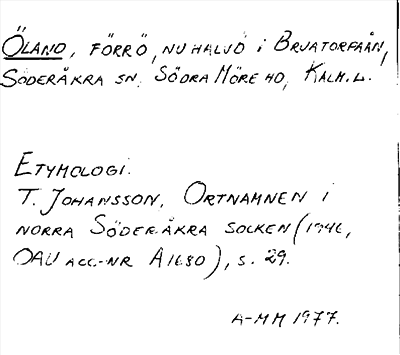 ÖLAND, FÖRRÖ, NU HALVÖ i BRUATORPAÅN,
SÖDERÅKRA SN, SÖDRA MÖRE HD, KALM. L.
ETYMOLOGI.
T. JOHANSSON, ORTNAMNEN i
NORRA SÖDERÅKRA SOCKEN (1946,
OAU ACC-NR A1680), S. 29.
A-MM 1977.